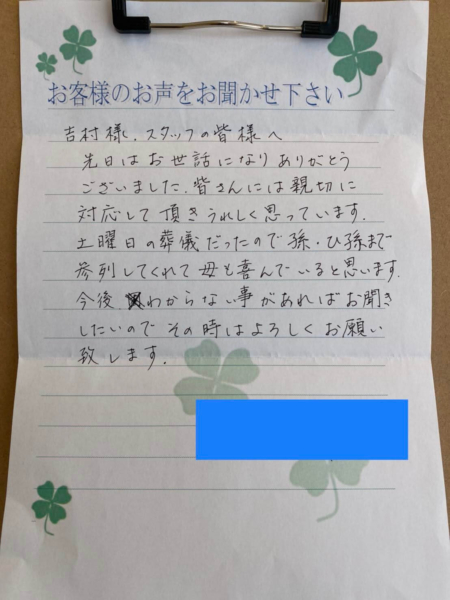 お客様のお声をお聞かせ下さい
吉村様、スタッフの皆様へ
先日はお世話になりありがとう
ございました。皆さんには親切に
対応して頂きうれしく思っています。
土曜日の葬儀だったので孫・ひ孫まで
参列してくれて母も喜んでいると思います。
今後わからない事があればお聞き
したいのでその時はよろしくお願い
致します。